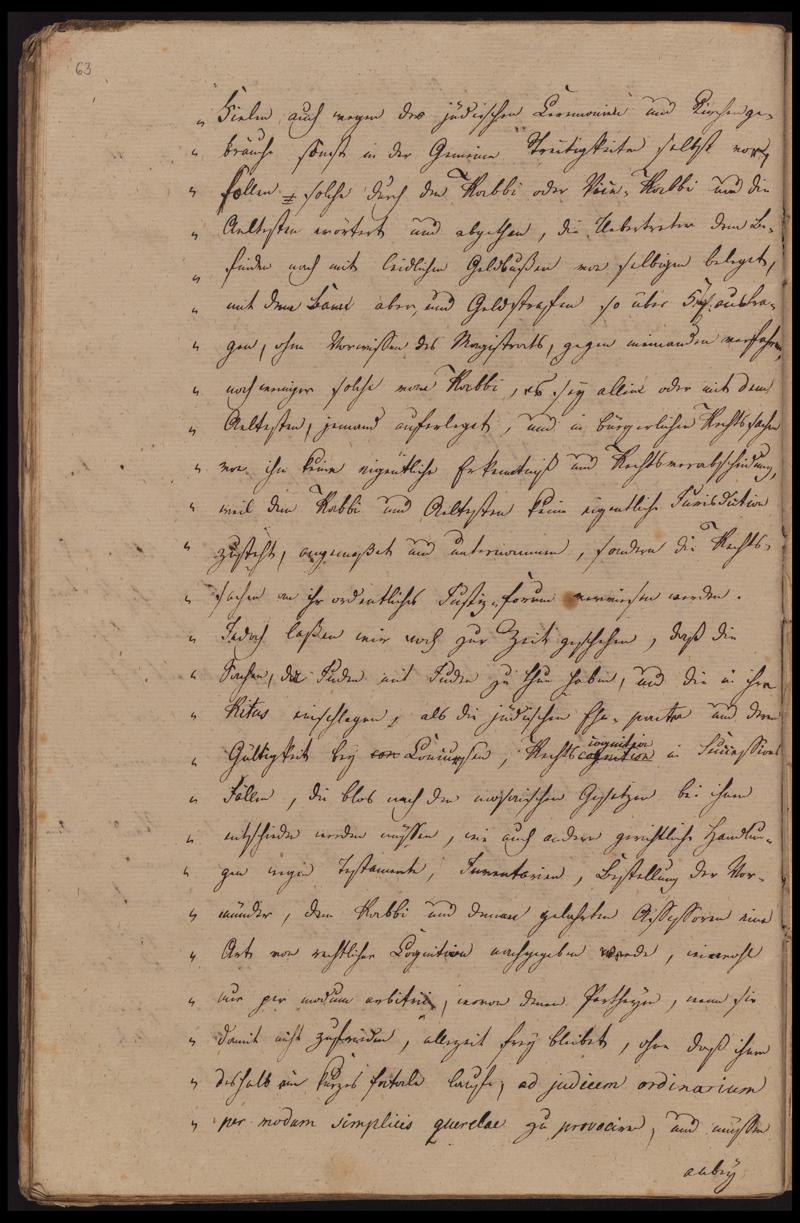 63
„ Fielen auch wegen der jüdischen Ceremonien und Kirchenge-
„ bräuche sonst in der Gemeine Streitigkeiten selbst vor,
„ sollen solche durch den Rabbi oder Vice-Rabbi und die
„ Aeltesten erörtert und abgethan, die Uebertreter dem Be-
„ finden nach mit leidlichen Geldbußen von selbigen beleget,
„ mit dem Bann aber, und Geldstrafen so über 5 rthl. austra-
„ gen, ohne Vorwissen des Magistrats, gegen niemanden verfahren,
„ noch weniger solche vom Rabbi, es sey allein oder mit den
„ Aeltesten, jemand auferleget, und in bürgerlichen Rechtssachen
„ von ihm keine eigentliche Erkenntniß und Rechtsverabscheidung,
„ weil dem Rabbi und Aeltesten keine eigentliche Jurisdiction
„ zusteht, angemaßet und unternommen, sondern die Rechts-
„ sachen an ihr ordentliches Justiz-forum verwiesen werden.
„ Jedoch laßen wir noch zur Zeit geschehen, daß die
„ Sachen, die Juden mit Juden zu thun haben, und die in ihre
„ Ritus einschlagen, als die jüdischen Ehe-pacta und deren
„ Gültigkeit bey Concursen, Rechtscognition in Successions
„ Fällen, die blos nach den mosaischen Gesetzen bei ihnen
„ entschieden werden müssen, wie auch andere gerichtliche Handlun-
„ gen wegen Testamente, Inventarien, Bestellung der Vor-
„ münder, dem Rabbi und denen gelahrten Assessoren eine
„ Art von rechtlicher Cognition nachgegeben werde, wiewohl
„ nur per modum arbitrii, wovon denen Partheyen, wenn sie
„ damit nicht zufrieden, allezeit frey bleibet, ohne daß ihnen
„ deshalb ein kurzes fatale laufe, ad judicem ordinarium
„ per modum simplicis querelae zu provociren, und müssen
anbey